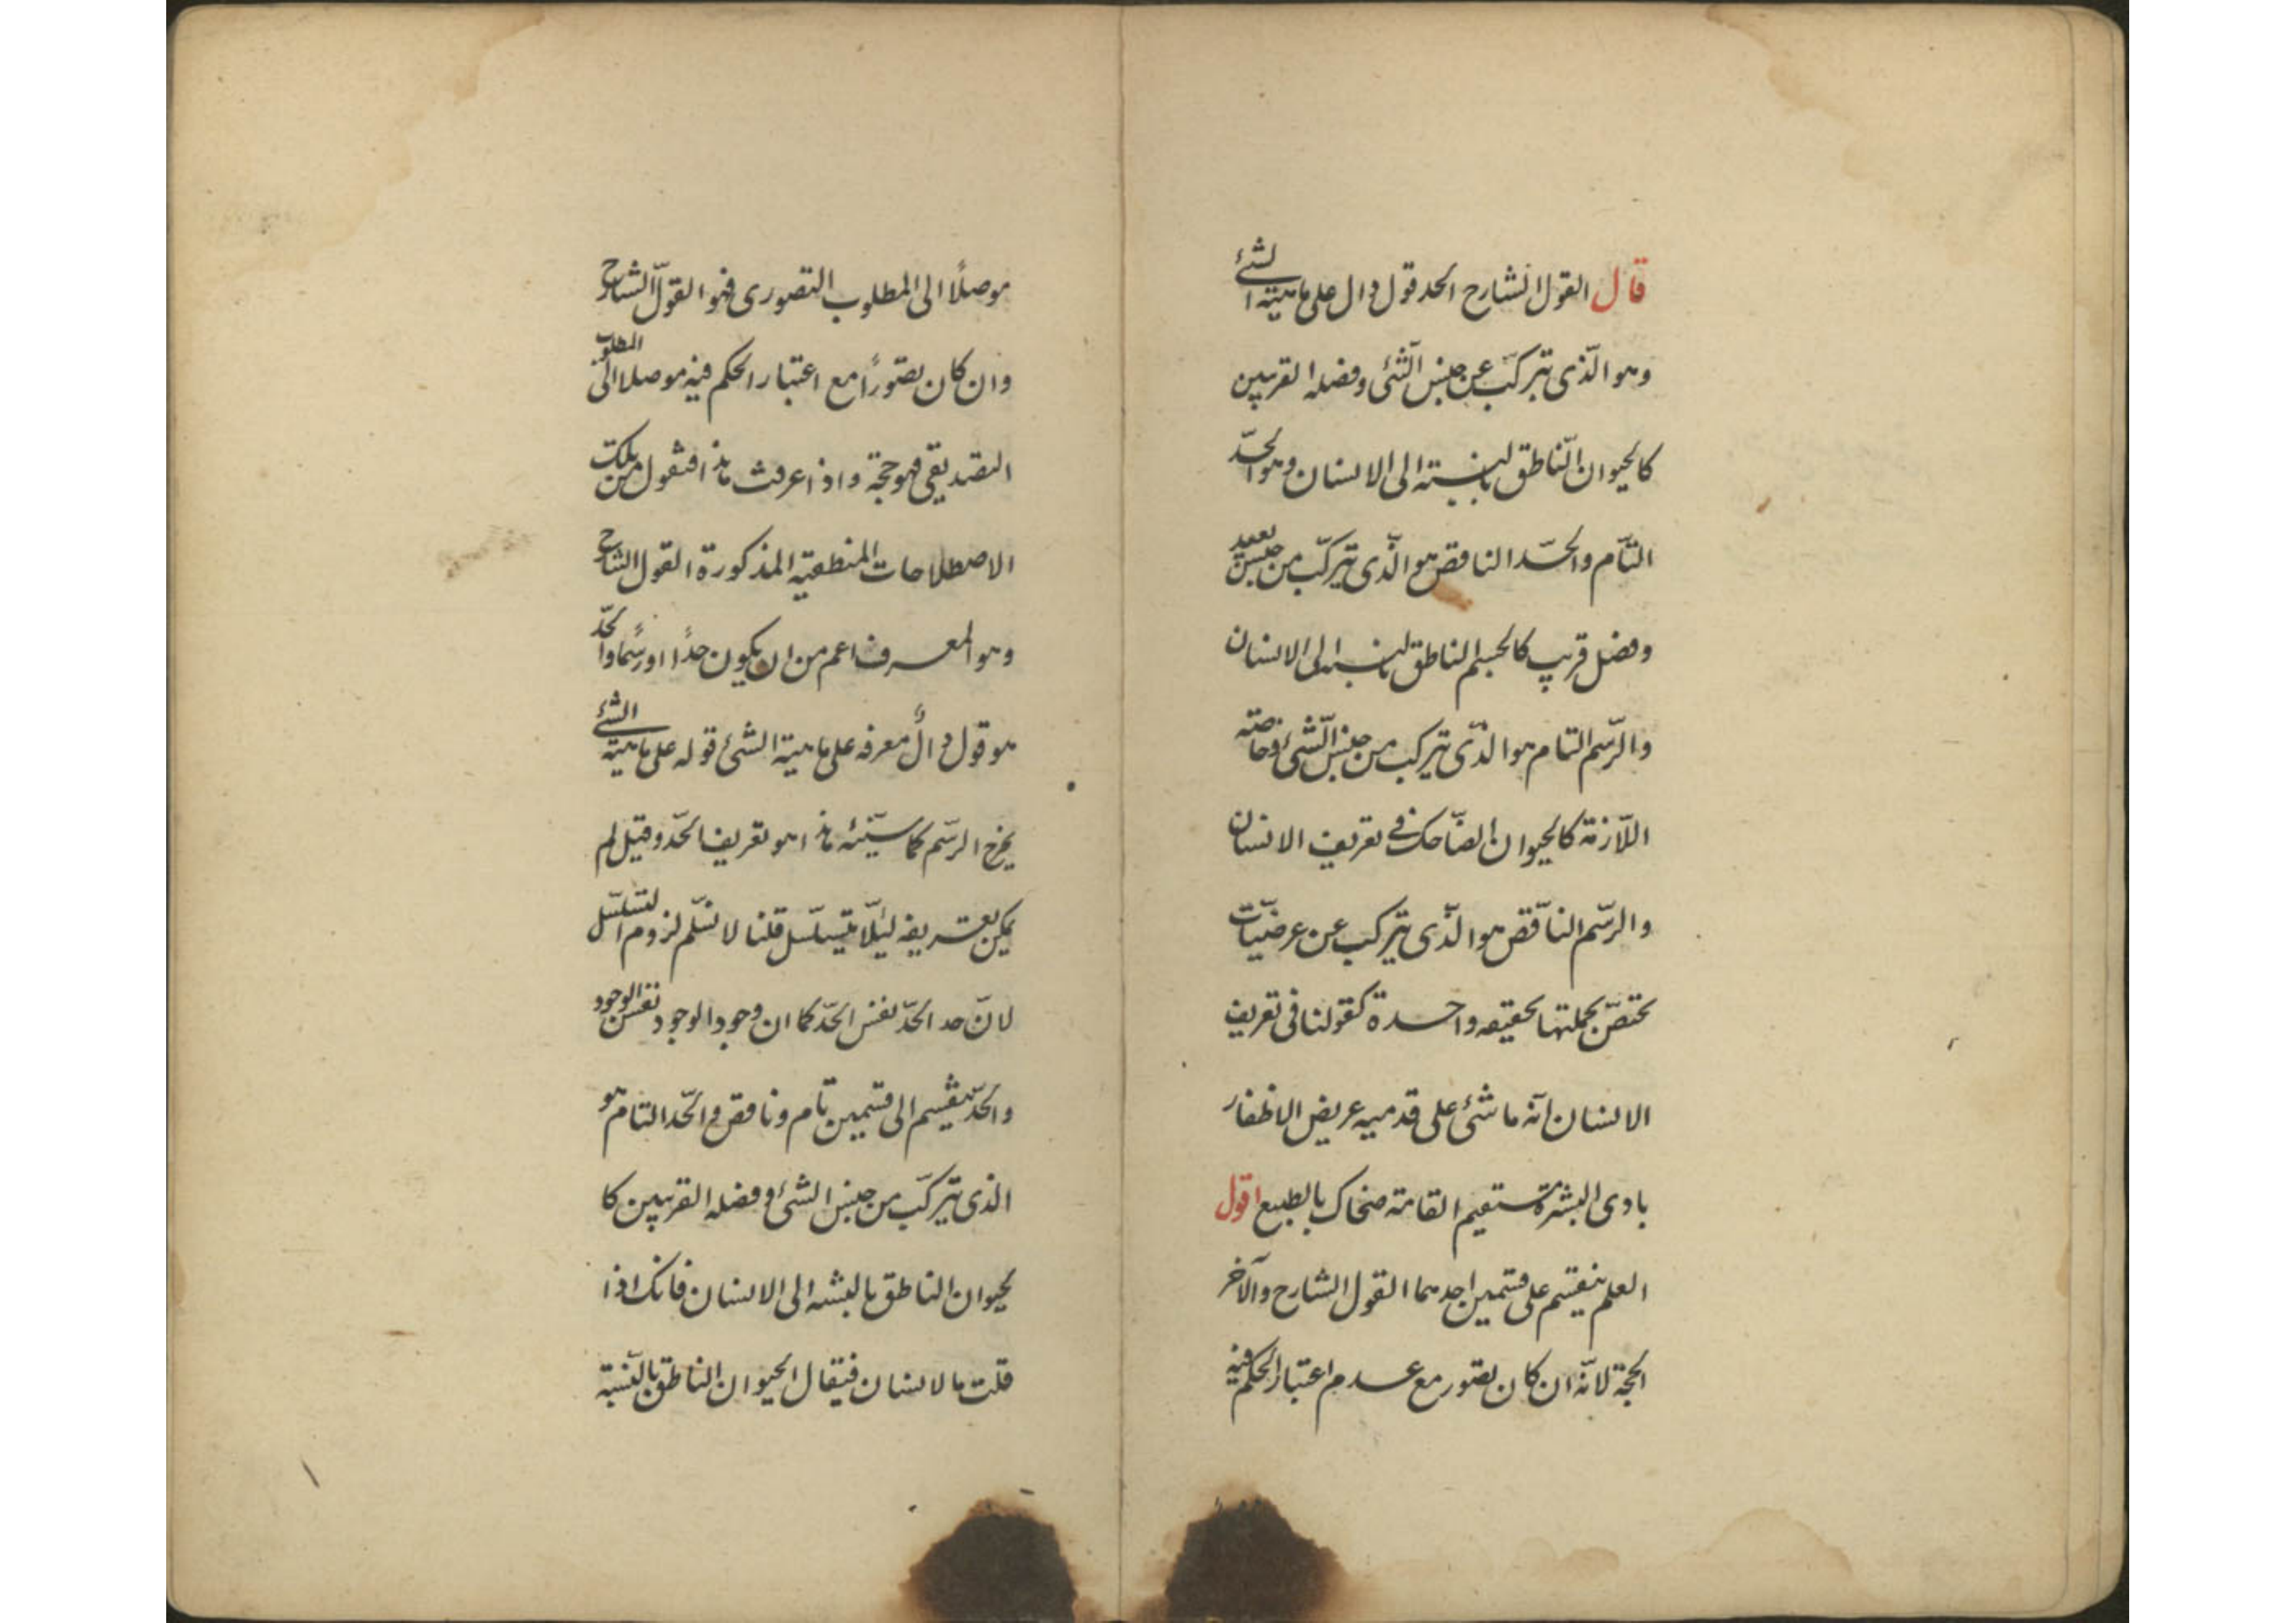 قال القول الشارح الحد قول دال على ماهية الشئ
وهو الّذى يتركّب عن جنس الشّئ وفصله القريبين
كالحيوان النّاطق بالنسبته الى الانسان وهو الحدّ
التّام والحدّ الناقص هو الّذى يتركّب من جنس بعيد
وفصل قريب كالجسم الناطق بالنسبه الى الانسان
والرّسم التام هو الذّى يتركب من جنس الشّئ وخاصته
اللّازمة كالحيوان الضّاحك فى تعريف الانسان
والرسّم النّاقص هو الذّى يتركب عن عرضيّات
تختصّ بجملتها بحقيقه واحدة كقولنا فى تعريف
الانسان انّه ماشئ على قدميه عريض الاظفار
بادى البشرة مستقيم القامة ضحاك بالطبع اقول
العلم ينقسم على قسمين احدهما القول الشارح والآخر
الحجة لانّه ان كان تصّور مع عدم اعتبار الحكم فيه
موصلًا الى المطلوب التصورى فهو القول الشّارح
وان كان تصوّرًا مع اعتبار الحكم فيه موصلا الى المطلوب
التصديقى فهو حجّة واذا عرفت هذا فنقول من تلك
الاصطلاحات المنطقيه المذكورة القول الشارح
وهو المعرف اعم من ان يكون حدًا او رسمًا والحدّ
هو قول دالٌ معرفه على ماهية الشئ قوله على ماهية الشئ
يخرج الرسّم كما سيّئه هذا هو تعريف الحدّ وقيل لم
يمكن تعريفه لئلّا يتسلسل قلنا لا نسّلم لزوم التسلسل
لانّ حد الحدّ نفس الحدّ كما ان وجود الوجود نفس الوجود
والحدّ ينقسم الى قسمين تام وناقص والحّد التام هو
الذى يتركّب من جنس الشئ وفصله القريبين كا
لحيوان الناطق بالنسبه الى الانسان فانك اذا
قلت ما لانسان فيقال الحيوان الناطق بالنّسبة